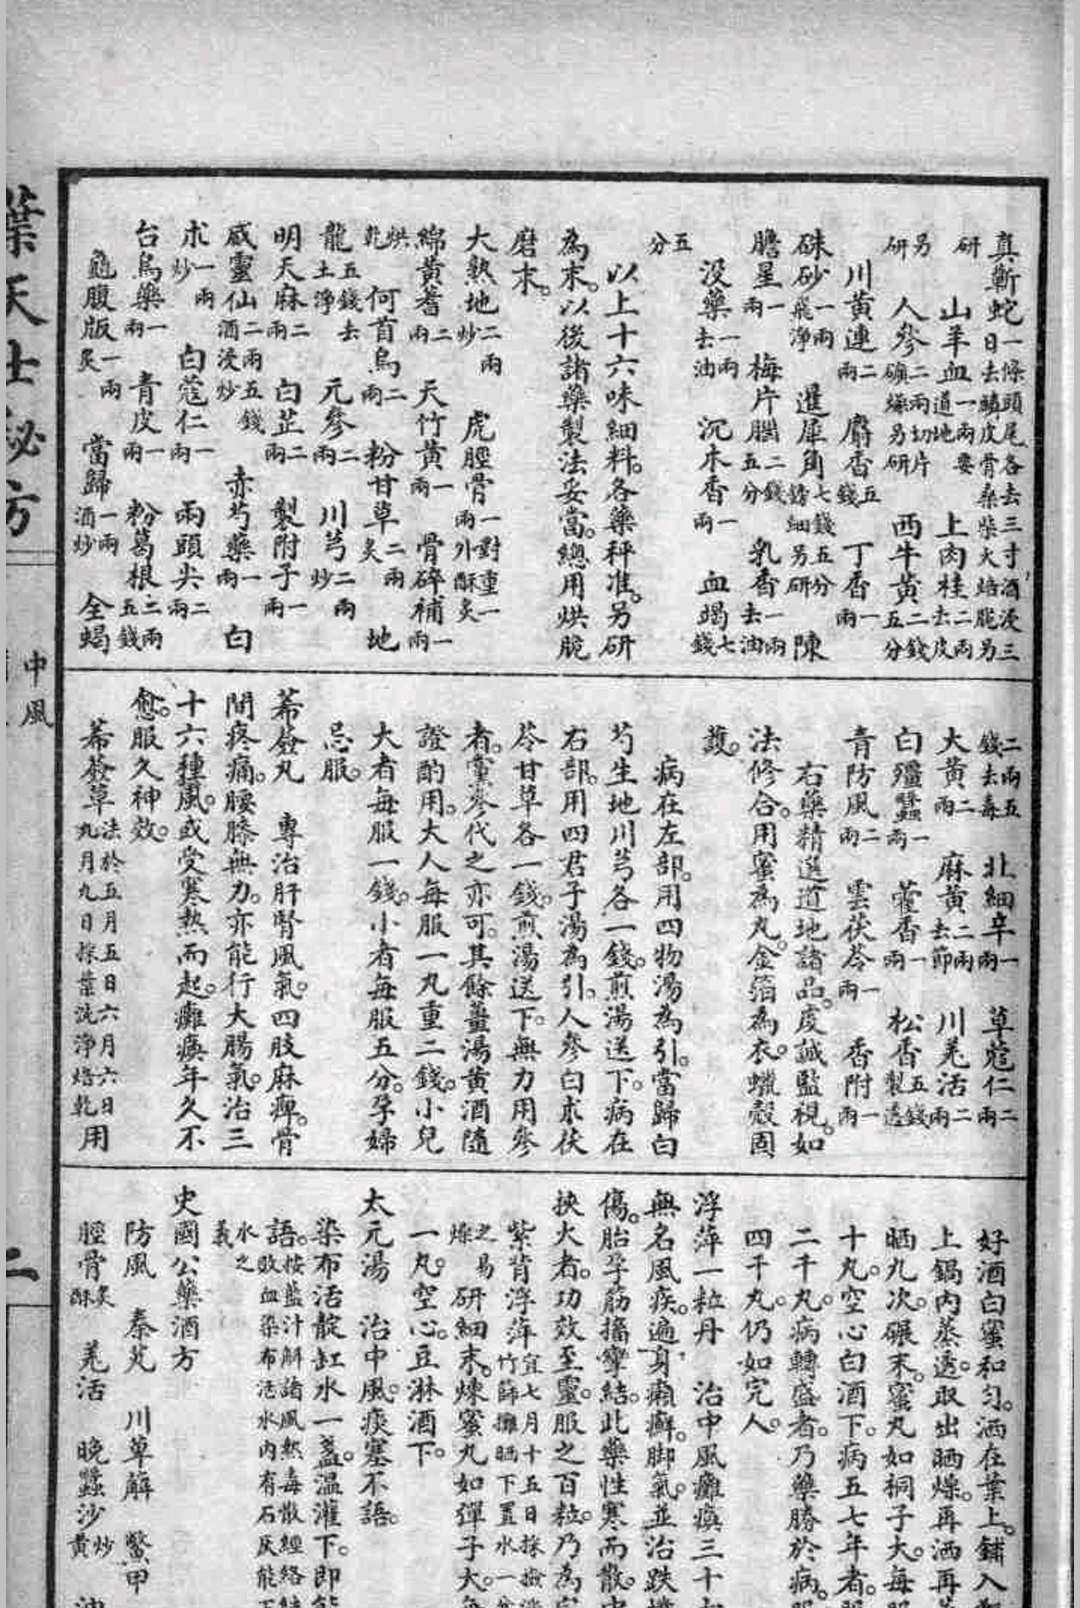 真蘄蛇一條頭尾各去三寸酒浸三日去醭皮骨桑柴火焙脆另研
山羊血一兩要道地 上肉桂二兩去皮
人參二兩切片礦燥另研 西牛黃二錢五分另研
川黃連二兩 麝香五錢 丁香一兩
硃砂一兩飛淨 暹犀角七錢五分銼細另研 陳
膽星一兩 梅片腦二錢五分 乳香一兩去油
沒藥一兩去油 沉木香一兩 血竭七錢五分
以上十六味細料。各藥秤准。另研
為末。以後諸藥製法妥當。總用烘脆
磨末。
大熟地二兩炒 虎脛骨一對重一兩外酥炙
綿黃耆二兩 天竹黃一兩 骨碎補一兩
烘乾 何首烏二兩 粉甘草二兩炙 地
龍五錢去土淨 元參二兩 川芎二兩炒
明天麻二兩 白芷二兩 製附子一兩
威靈仙二兩五錢酒浸炒 赤芍藥一兩 白
朮一兩炒 白蔻仁一兩 兩頭尖二兩
台烏藥一兩 青皮一兩 粉葛根二兩五錢
龜腹版一兩炙 當歸一兩酒炒 全蝎
二兩五錢去毒 北細辛一兩 草蔻仁二兩
大黃二兩 麻黃二兩去節 川羌活二兩
白殭蠶一兩 藿香一兩 松香五錢製透
青防風二兩 雲茯苓一兩 香附一兩
右藥精選道地諸品。虔誠監視。如
法修合。用蜜為丸。金箔為衣。蠟殼固
護。
病在左部。用四物湯為引。當歸白
芍生地川芎各一錢。煎湯送下。病在
右部。用四君子湯為引。人參白朮茯
苓甘草各一錢。煎湯送下。無力用參
者。黨參代之亦可。其餘薑湯黃酒隨
證酌用。大人每服一丸重二錢。小兒
大者每服一錢。小者每服五分。孕婦
忌服。
莃薟丸 專治肝腎風氣。四肢麻痺。骨
間疼痛。腰膝無力。亦能行大腸氣。治三
十六種風。或受寒熱而起。癱瘓年久不
愈。服久神效。
莃薟草法於五月五日六月六日九月九日採葉洗淨焙乾用
好酒白蜜和勻。洒在葉上。鋪入
上鍋內蒸透。取出晒燥。再洒再
晒九次。碾末。蜜丸如桐子大。每
十丸。空心白酒下。病五七年者。
二千丸。病轉盛者。乃藥勝於病。
四千丸。仍如完人。
浮萍一粒丹 治中風癱瘓三十
無名風疾。遍身癩癬。脚氣。並治跌
傷。胎孕筋搐攣結。此藥性寒而散。
挾大者。功效至靈。服之百粒。乃為
紫背浮萍宜七月十五日採竹篩攤晒下置水一之易燥 研細末。煉蜜丸如彈子大。
一丸。空心。豆淋酒下。
太元湯 治中風痰塞不語。
染布活靛缸水一盞。溫灌下。即
語。按藍汁解諸風熱毒散經絡敗血染布活水內有石灰能水之義
史國公藥酒方
防風 秦艽 川萆薢 鱉甲
脛骨炙酥 羌活 晚蠶沙炒黃
葉天士秘方
中風
二